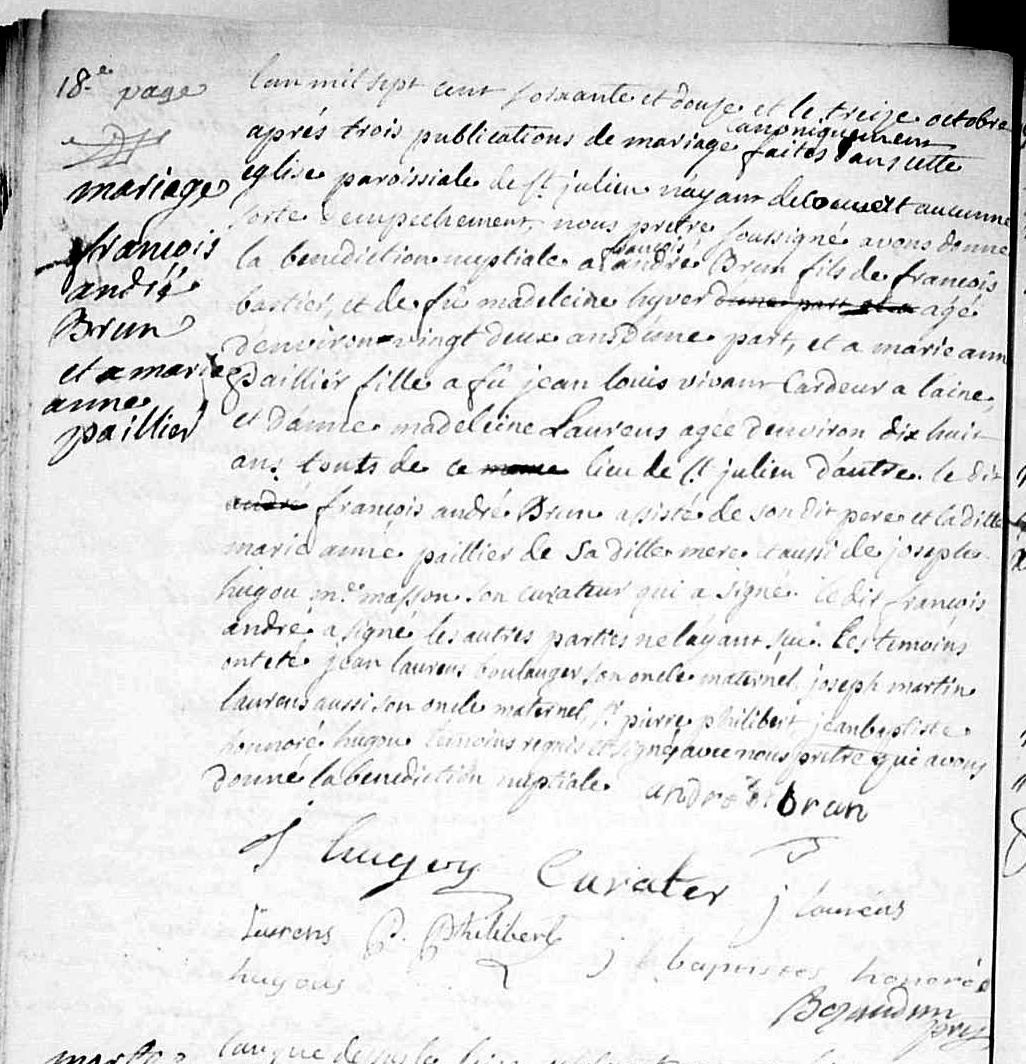 18.e page
mariage
françois
andié
Brun
et a marie
anne
paillier
l'an mil sept cent soixante et douse et le treize octobre
aprés trois publications de mariage canoniquement faites dans cette
eglise paroissiale de st julien n'ayant decouvert aucunne
sorte d'empechement, nous pretre soussigné avons donné
la benediction nuptiale a françois andré Brun fils de françois
bastier, et de fû madeleine hyver d'une part et a agé
d'environ vingt deux ans d'une part, et a marie anne
paillier fille a fû jean louis vivant Cardeur a laine,
et d'anne madeleine Laurens agée d'environ dix huit
ans touts de ce meme lieu de st julien d'autre. le dit
andré françois andré Brun assisté de son dit pere et la ditte
marie anne paillier de sa ditte mere et aussi de joseph
hugou me masson son curateur qui a signé. le dit françois
andre a signé les autres parties ne l'ayant sçu. Les temoins
ont eté jean laurens boulanger son oncle maternel, joseph martin
laurens aussi son oncle maternel, sr pierre philibert, jean baptiste
honnoré hugou temoins requis et signés avec nous prêtre qui avons
donné la benediction nuptiale. andre brun
J hugou Curater
j laurens
laurens P. Philibert
j baptistes honoré
hugous
pret
l'an que dessus